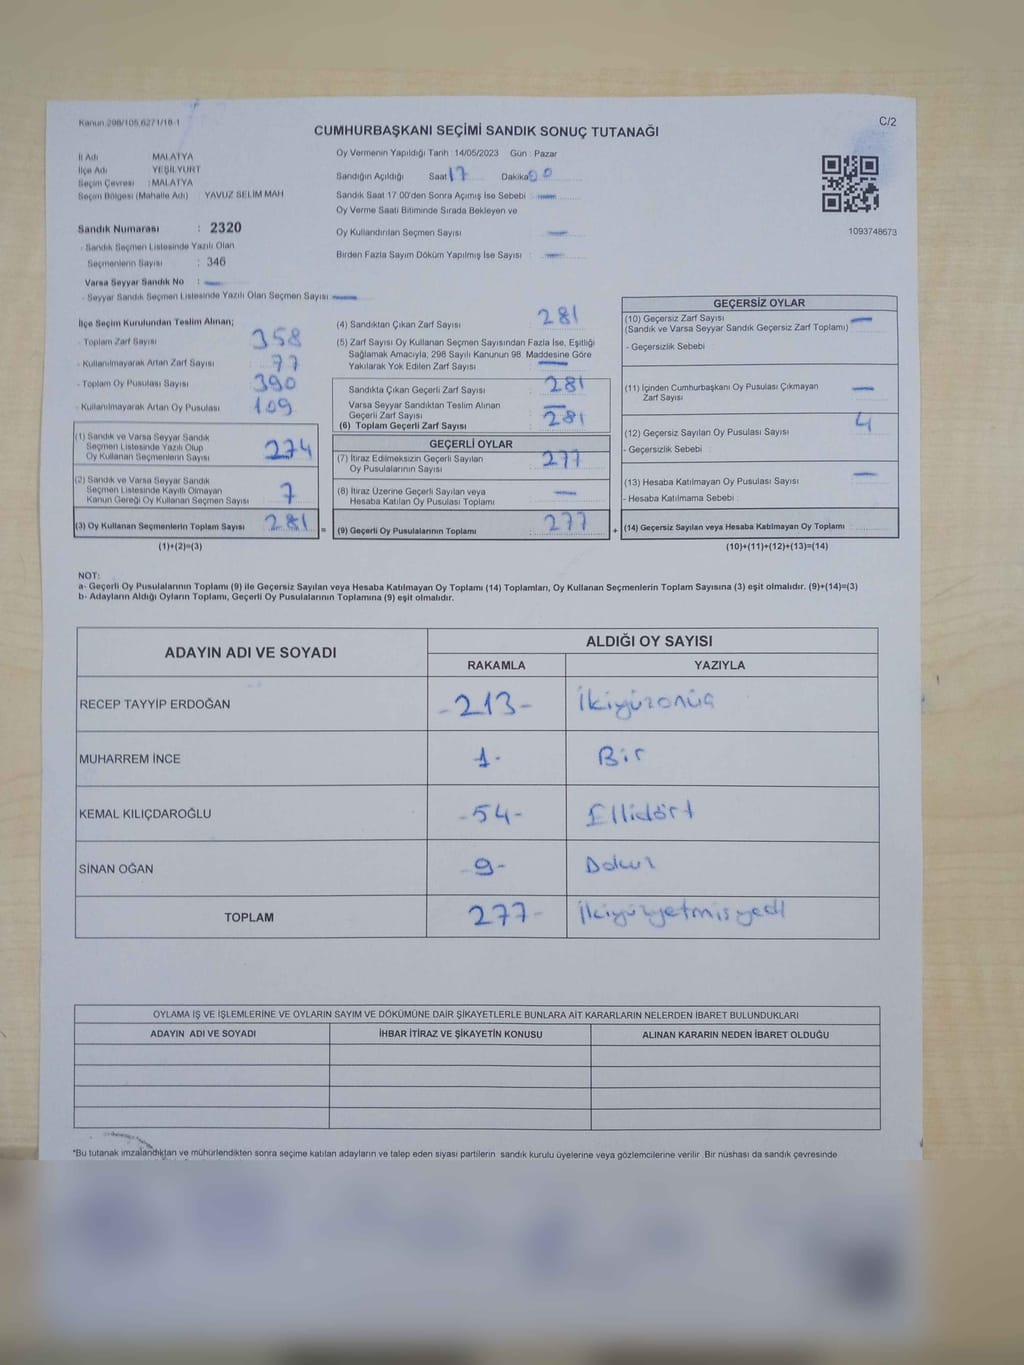 Kanun 298/105,6271/18-1
C/2
CUMHURBAŞKANI SEÇİMİ SANDIK SONUÇ TUTANAĞI
İl Adı MALATYA
İlçe Adı YEŞİLYURT
Seçim Çevresi : MALATYA
Seçim Bölgesi (Mahalle Adı) YAVUZ SELİM MAH
Sandık Numarası : 2320
- Sandık Seçmen Listesinde Yazılı Olan
Seçmenlerin Sayısı : 346
Varsa Seyyar Sandık No : —
- Seyyar Sandık Seçmen Listesinde Yazılı Olan Seçmen Sayısı —
Oy Vermenin Yapıldığı Tarih : 14/05/2023 Gün : Pazar
Sandığın Açıldığı Saat 17 Dakika 00
Sandık Saat 17 00'den Sonra Açımış İse Sebebi : —
Oy Verme Saati Bitiminde Sırada Bekleyen ve
Oy Kullandırılan Seçmen Sayısı : —
Birden Fazla Sayım Döküm Yapılmış İse Sayısı : —
1093748673
İlçe Seçim Kurulundan Teslim Alınan;
- Toplam Zarf Sayısı 358
- Kullanılmayarak Artan Zarf Sayısı 77
- Toplam Oy Pusulası Sayısı 390
- Kullanılmayarak Artan Oy Pusulası 109
(1) Sandık ve Varsa Seyyar Sandık
Seçmen Listesinde Yazılı Olup
Oy Kullanan Seçmenlerin Sayısı 274
(2) Sandık ve Varsa Seyyar Sandık
Seçmen Listesinde Kayıtlı Olmayan
Kanun Gereği Oy Kullanan Seçmen Sayısı 7
(3) Oy Kullanan Seçmenlerin Toplam Sayısı 281
(1)+(2)=(3)
(4) Sandıktan Çıkan Zarf Sayısı 281
(5) Zarf Sayısı Oy Kullanan Seçmen Sayısından Fazla İse, Eşitliği
Sağlamak Amacıyla, 298 Sayılı Kanunun 98. Maddesine Göre
Yakılarak Yok Edilen Zarf Sayısı —
Sandıkta Çıkan Geçerli Zarf Sayısı 281
Varsa Seyyar Sandıktan Teslim Alınan
Geçerli Zarf Sayısı —
(6) Toplam Geçerli Zarf Sayısı 281
GEÇERLİ OYLAR
(7) İtiraz Edilmeksizin Geçerli Sayılan
Oy Pusulalarının Sayısı 277
(8) İtiraz Üzerine Geçerli Sayılan veya
Hesaba Katılan Oy Pusulaları Toplamı —
= (9) Geçerli Oy Pusulalarının Toplamı 277
GEÇERSİZ OYLAR
(10) Geçersiz Zarf Sayısı
(Sandık ve Varsa Seyyar Sandık Geçersiz Zarf Toplamı) —
- Geçersizlik Sebebi
(11) İçinden Cumhurbaşkanı Oy Pusulası Çıkmayan
Zarf Sayısı —
(12) Geçersiz Sayılan Oy Pusulası Sayısı 4
- Geçersizlik Sebebi
(13) Hesaba Katılmayan Oy Pusulası Sayısı —
- Hesaba Katılmama Sebebi
+ (14) Geçersiz Sayılan veya Hesaba Katılmayan Oy Toplamı
(10)+(11)+(12)+(13)=(14)
NOT:
a- Geçerli Oy Pusulalarının Toplamı (9) ile Geçersiz Sayılan veya Hesaba Katılmayan Oy Toplamı (14) Toplamları, Oy Kullanan Seçmenlerin Toplam Sayısına (3) eşit olmalıdır. (9)+(14)=(3)
b- Adayların Aldığı Oyların Toplamı, Geçerli Oy Pusulalarının Toplamına (9) eşit olmalıdır.
ADAYIN ADI VE SOYADI ALDIĞI OY SAYISI
RAKAMLA YAZIYLA
RECEP TAYYİP ERDOĞAN -213- İkiyüzonüç
MUHARREM İNCE 1- Bir
KEMAL KILIÇDAROĞLU -54- Ellidört
SİNAN OĞAN -9- Dokuz
TOPLAM 277- İkiyüzyetmişyedi
OYLAMA İŞ VE İŞLEMLERİNE VE OYLARIN SAYIM VE DÖKÜMÜNE DAİR ŞİKAYETLERLE BUNLARA AİT KARARLARIN NELERDEN İBARET BULUNDUKLARI
ADAYIN ADI VE SOYADI İHBAR İTİRAZ VE ŞİKAYETİN KONUSU ALINAN KARARIN NEDEN İBARET OLDUĞU
*Bu tutanak imzalandıktan ve mühürlendikten sonra seçime katılan adayların ve talep eden siyasi partilerin sandık kurulu üyelerine veya gözlemcilerine verilir .Bir nüshası da sandık çevresinde